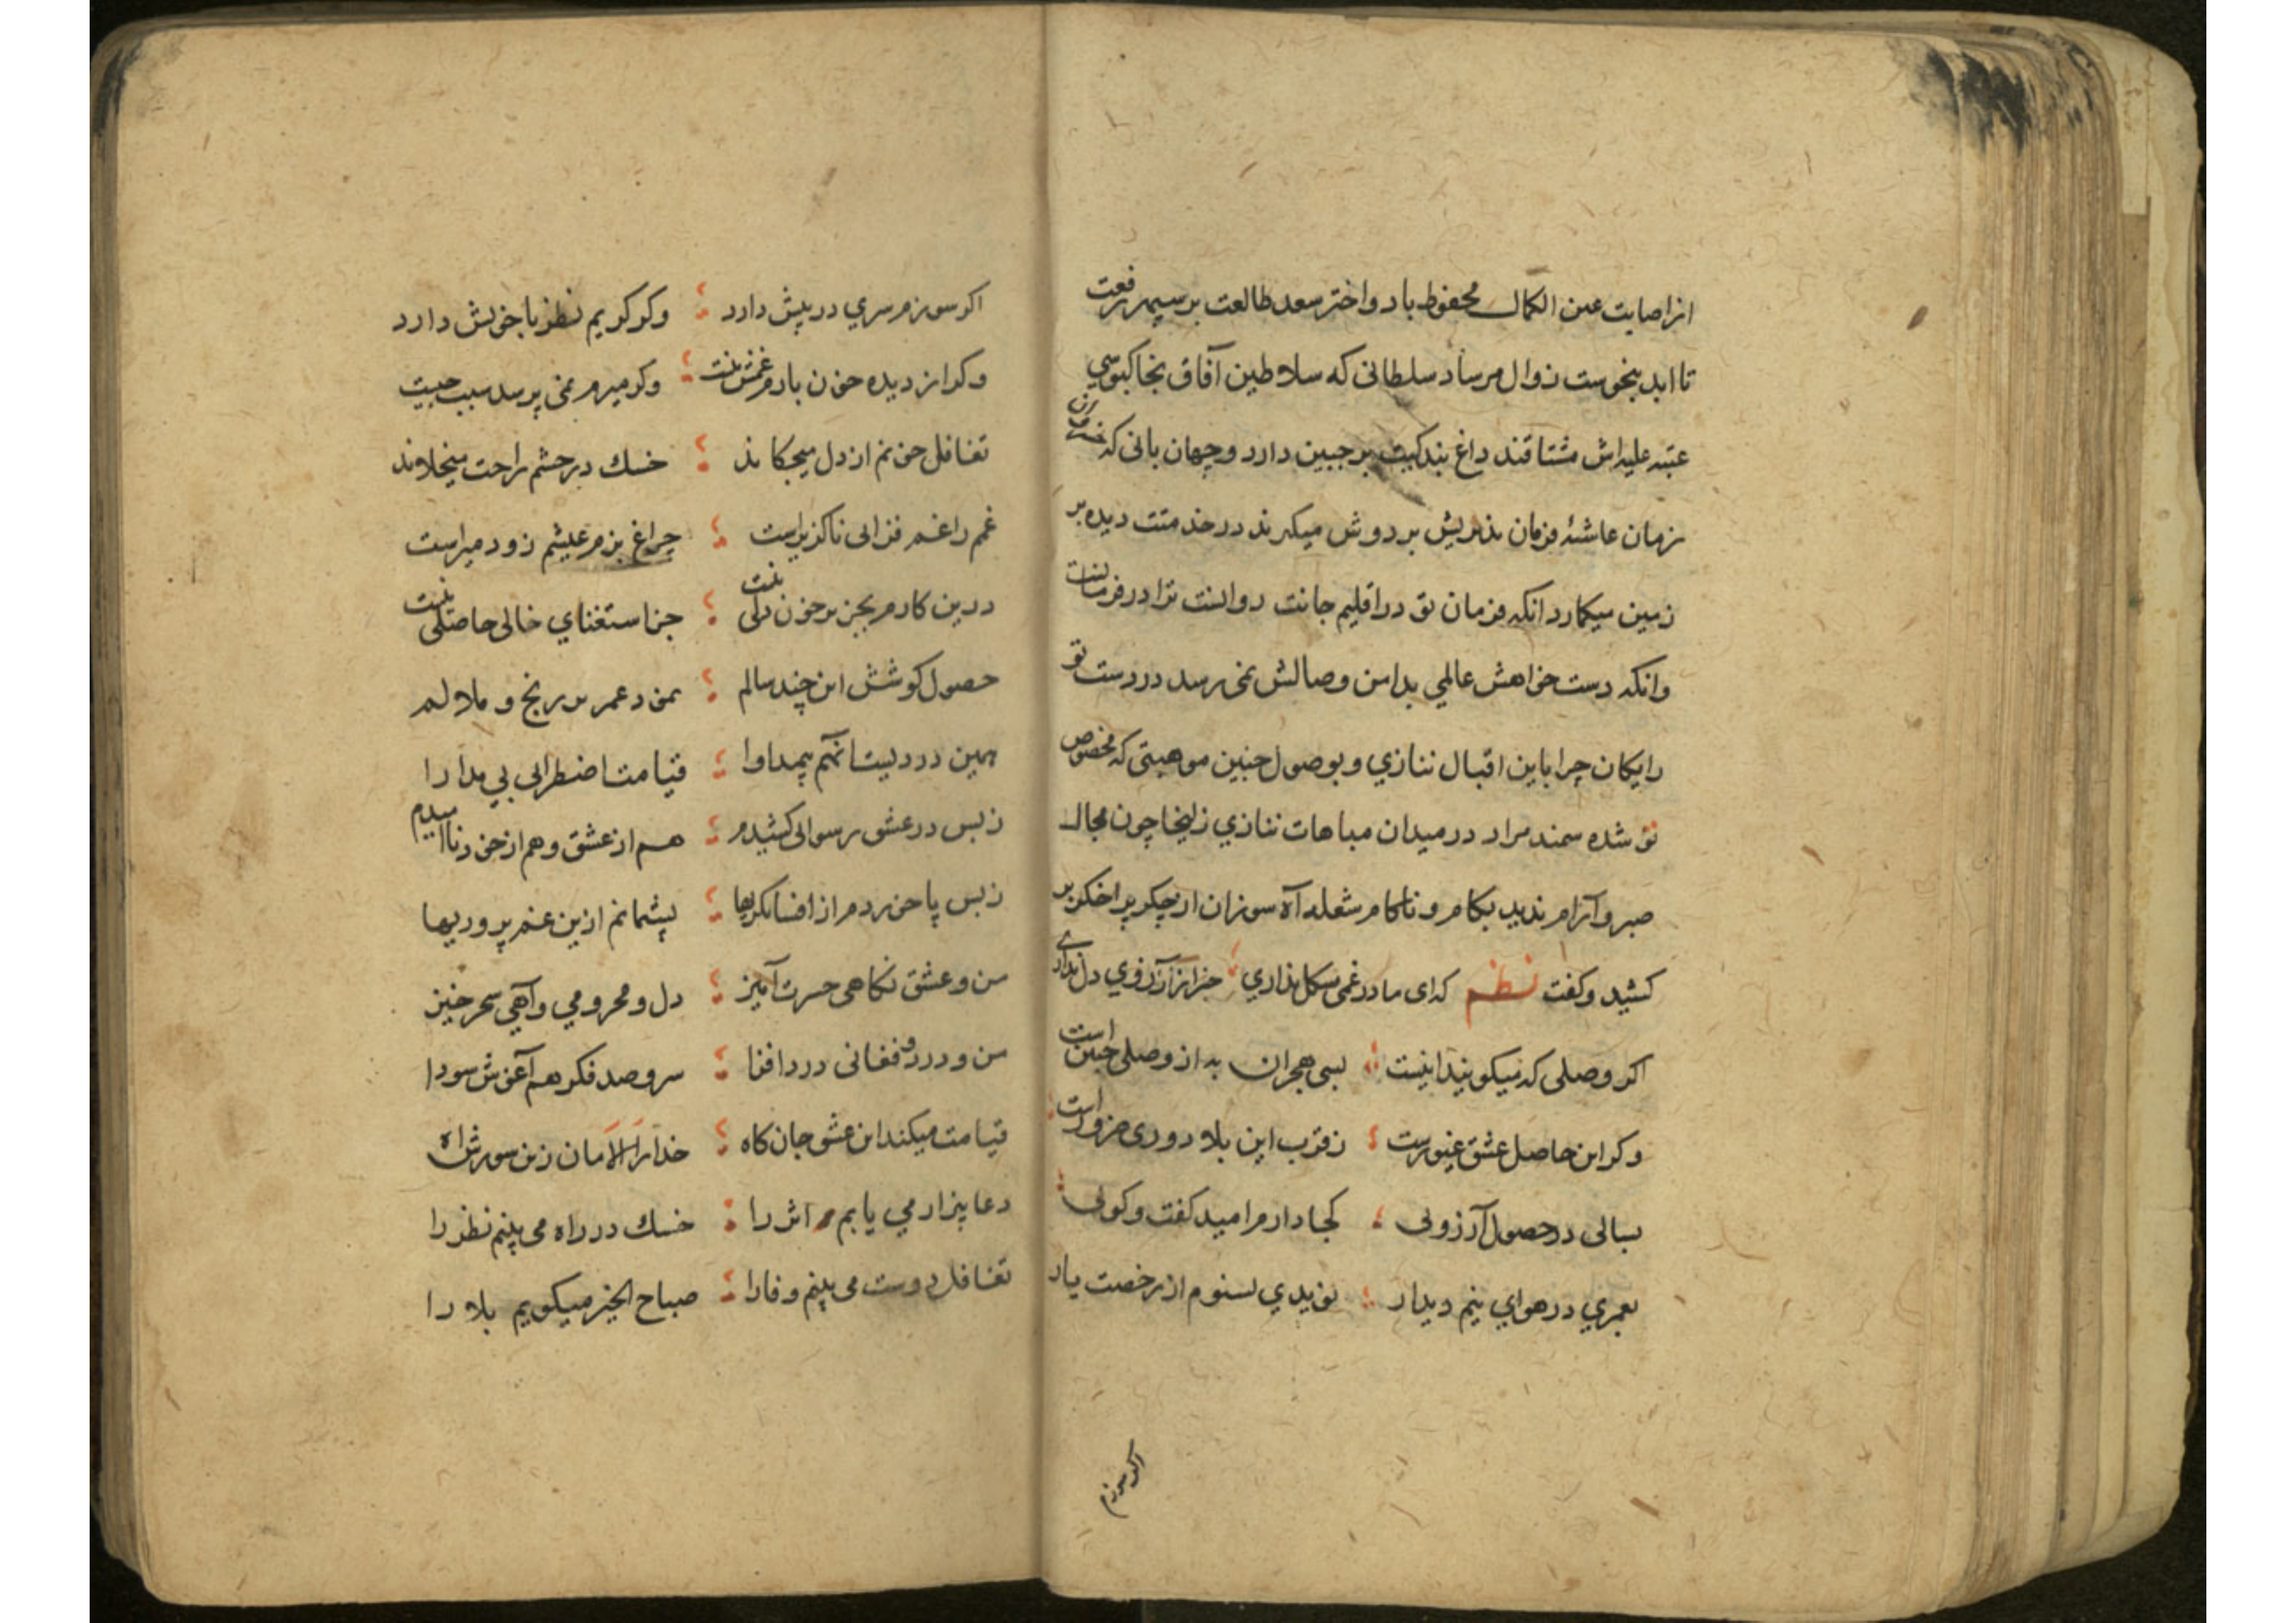 از اصابت عین الکمال محفوظ باد و اختر سعد طالعت بر سپهر رفعت
تا ابد بنحوست زوال مرساد سلطانی که سلاطین آفاق بخاکبوسی
عتبه علیه اش مشتاقند داغ بندکیت بر جبین دارد و جهان بانی که
زمان غاشیه فرمان پذیریش بر دوش میکیرند در خدمتت دیده بر
زمین میکمارد انکه فرمان تو در اقلیم جانت روانست ترا در فرمانست
وانکه دست خواهش عالمی بدامن وصالش نمی رسد در دست تو
رایکان چرا باین اقبال ننازی و بوصول چنین موهبتی که مخصوص
تو شده سمند مراد در میدان مباهات نتازی زلیخا چون مجال
صبر و آرام ندید بکام و ناکام شعله آه سوزان از جکر پر اخکر بر
کشید و کفت نظم که ای مادر غمی مشکل نداری جز از آرزوی دل نداری
اکر وصلی که میکویند اینست بسی هجران به از وصلی چنین است
وکر این حاصل عشق غیورست ز قرب این بلا دوری ضرور است
بسالی در حصول آرزوئی کجا دارم امید کفت وکوئی
بعمری در هوای نیم دیدار نویدی نشنوم از رخصت یار
اکر سوزم
اکر سوزم سری در پیش دارد وکر کریم نظر با خویش دارد
وکر از دیده خون بارم غمش نیست وکر میرم نمی پرسد سبب چیست
تغافل خونم از دل میچکاند خسك در چشم راحت میخلاند
غمم را غم فزائی ناکزیر است چراغ بزم عیشم زود میر است
درین کارم بجز پر خون دلی نیست جز استغنای خالی حاصلی نیست
حصول کوشش این چند سالم نمود عمر پر رنج و ملالم
همین دردیست آنهم بیمداوا قیامت اضطرابی بی مدارا
ز بس در عشق رسوائی کشیدم هم از عشق و هم از خود ناامیدم
ز بس پا خوردم از افسانکریها پشیمانم ازین غم پروریها
من و عشق نکاهی حسرت آمیز دل و محرومی و آهی سحر خیز
من و درد و فغانی درد افزا سر و صد فکر هم آغوش سودا
قیامت میکند این عشق جان کاه خدا را الامان زین سوزش آه
دعا بیزار می یابم اثر را خسك در راه می بینم نظر را
تغافل دوست می بینم وفا را صباح الخیر میکویم بلا را